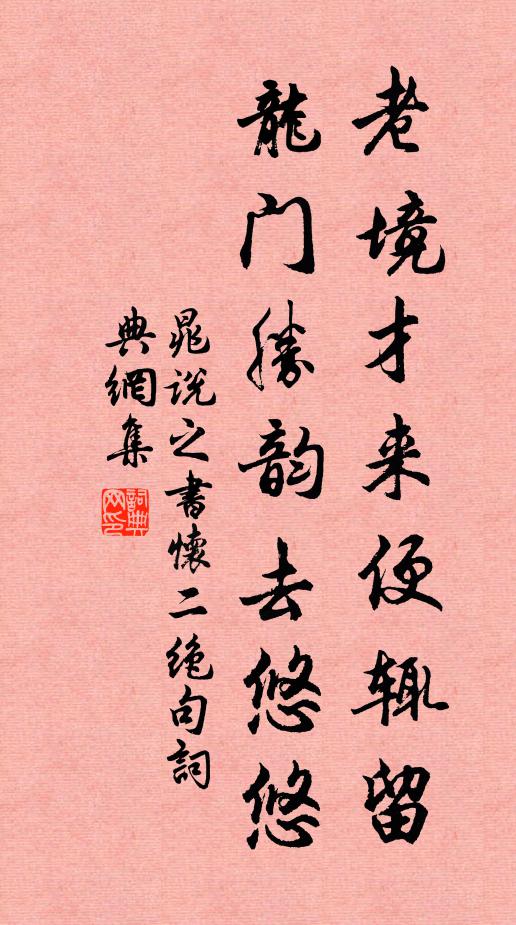 老境才来便辄留
龍门勝韵去悠悠
晁说之書懷二绝句詞
典網集
詞典網印